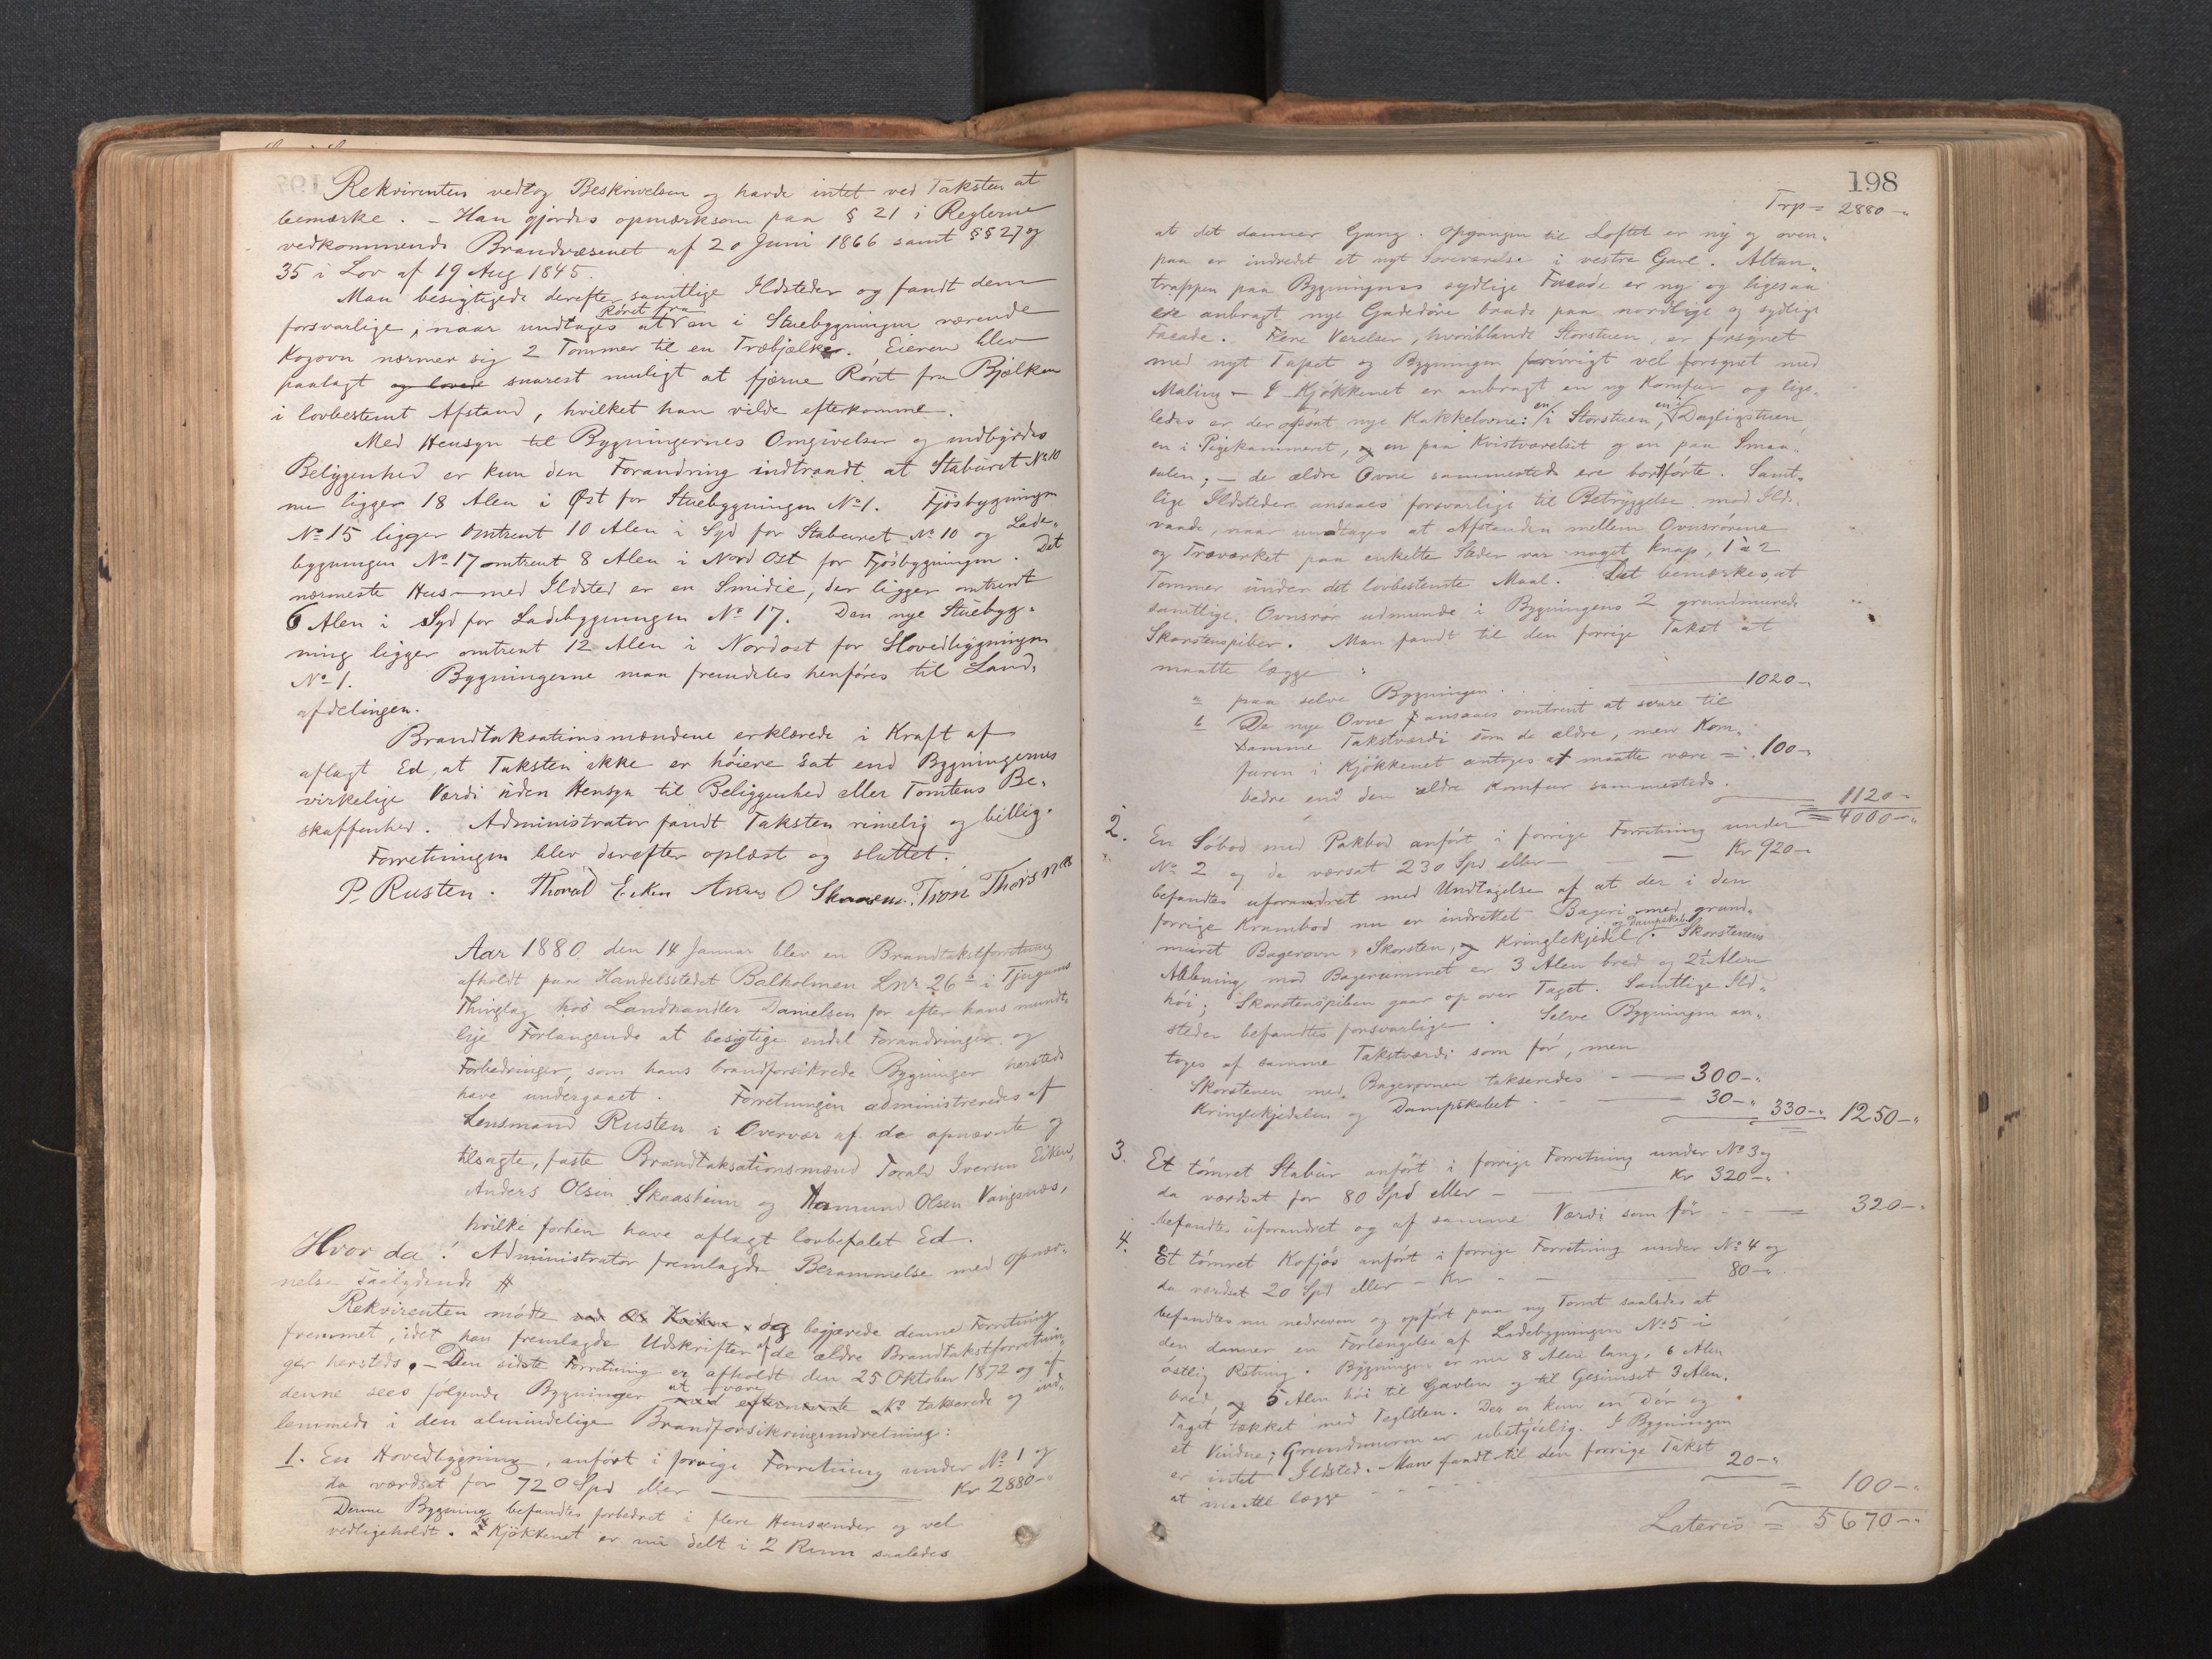 Rekvirenten vedtog Beskrivelsen og havde intet ved Taksten at
bemærke. – Han gjordes opmærksom paa § 21 i Reglerne
vedkommende Brandvæsenet af 20 Juni 1866 samt §§ 27 og
35 i Lov af 19 Aug 1845.
Man besigtigede derefter samtlige Ildsteder og fandt dem
Röret fra
forsvarlige, naar undtages at en i Stuebygningen værende
Kogovn nærmer sig 2 Tommer til en Træbjælke. Eieren blev
paalagt og lovede snarest muligt at fjærne Röret fra Bjælken
i lovbestemt Afstand, hvilket han vilde efterkomme.
Med Hensyn til Bygningernes Omgivelser og indbyrdes
Beliggenhed er kun den Forandring indtraadt at Staburet No 10
nu ligger 18 Alen i Øst for Stuebygningen No 1. Fjösbygningen
No 15 ligger omtrent 10 Alen i Syd for Staburet No 10 og Lade„
bygningen No 17 omtrent 8 Alen i Nord Ost for Fjösbygningen. Det
nærmeste Hus med Ildsted er en Smidie, der ligger omtrent
6 Alen i Syd for Ladebygningen No 17. Den nye Stuebyg„
ning ligger omtrent 12 Alen i Nordost for Hovedbygningen
No 1. Bygningerne maa fremdeles henföres til Land„
afdelingen.
Brandtaksationsmændene erklærede i Kraft af
aflagt Ed, at Taksten ikke er höiere sat end Bygningernes
virkelige Værdi uden Hensyn til Beliggenhed eller Tomtens Be„
skaffenhed. Administrator fandt Taksten rimelig og billig.
Forretningen blev derefter oplæst og sluttet.
P. Rusten. Thorald Eiken O Skaasem. Tron
Aar 1880 den 14 Januar blev en Brandtakstforretning
afholdt paa Handelsstedet Balholmen LNr. 26a i Tjugums
Thinglag hos Landhandler Danielsen for efter hans mundt„
lige Forlangende at besigtige endel Forandringer og
Forbedringer, som hans brandforsikrede Bygninger hersteds
have undergaaet. Forretningen administreredes af
Lensmand Rusten i Overvær af de opnævnte og
tilsagte, faste Brandtaksationsmænd Torald Iversen Eiken,
Anders Olsen Skaasheim og Aamund Olsen Vangsnæs,
hvilke forhen have aflagt lovbefalet Ed.
Hvor da! Administrator fremlagde Berammelse med Opnæv„
nelse saalydende #
Rekvirenten mødte og begjærede denne Forretning
fremmet, idet han fremlagde Udskrifter af de ældre Brandtakstforretnin„
ger hersteds. – Den sidste Forretning er afholdt den 25 Oktober 1872 og af
at være
denne sees følgende Bygninger med efternævnte No takserede og ind„
lemmede i den almindelige Brandforsikringsindretning:
1. En Hovedbygning, anfört i forrige Forretning under No 1 og
da værdsat for 720 Spd eller Kr 2880 –„
Denne Bygning befandtes forbedret i flere Henseender og vel
vedligeholdt. Kjökkenet er nu delt i 2 Rum saaledes
198
Trp = 2880 –„
at det danner Gang. Opgangen til Loftet er ny og oven„
paa er indredet et nyt Soveværelse i vestre Gavl. Altan„
trappen paa Bygningens sydlige Facade er ny og ligesaa
ere anbragt nye Gadedöre baade paa nordlige og sydlige
Facade. Flere Værelser, hvoriblandt Storstuen, er forsynet
med nyt Tapet og Bygningen forövrigt vel forsynet med
Maling – I Kjökkenet er anbragt en ny Komfur og lige„
ledes er der opsat nye Kakkelovne: en i Storstuen, en i Dagligstuen,
en i Pigekammeret, og en paa Kvistværelset og en paa Smaa„
salen; – de ældre Ovne sammesteds ere bortförte. Samt„
lige Ildsteder ansaaes forsvarlige til Betryggelse mod Ild„
vaade, naar undtages at Afstanden mellem Ovnsrörene
og Træværket paa enkelte Steder var noget knap, 1 à 2
Tommer under det lovbestemte Maal. Det bemærkes, at
samtlige Ovnsrör udmunde i Bygningens 2 grundmurede
Skorstenspiber. Man fandt til den forrige Takst at
maatte lægge:
a paa selve Bygningen 1020 –„
b De nye Ovne ansaaes omtrent at svare til
samme Takstværdi som de ældre, men Kom„
furen i Kjökkenet antoges at maatte være = 100 –„
bedre end den ældre Komfur sammesteds.
1120 –„
= 4000 –„
2. En Söbod med Pakbod anfört i forrige Forretning under
No 2 og da værsat 230 Spd eller – Kr 920 –„
befandtes uforandret med Undtagelse af at der i den
forrige Krambod nu er indrettet Bageri med grund„
og Dampskab
muret Bagerovn, Skorsten, og Kringlekjedel. Skorstenens
Aabning mod Bagerummet er 3 Alen bred og 2½ Alen
höi; Skorstenspiben gaar op over Taget. Samtlige Ild„
steder befandtes forsvarlige. Selve Bygningen an„
toges af samme Takstværdi som för, men
Skorstenen med Bagerovnen takseredes – 300 –„
Kringlekjedelen og Dampskabet – 30 –„ 330 –„ 1250 –„
3. Et tömret Stabur anfört i forrige Forretning under No 3 og
da værdsat for 80 Spd eller – Kr 320 –„
befandtes uforandret og af samme Værdi som för – = 320 –„
4. Et tömret Kofjös anfört i forrige Forretning under No 4 og
da verdsat 20 Spd eller – Kr – 80 –„
befandtes nu nedreven og opfört paa ny Tomt saaledes at
den danner en Forlængelse af Ladebygningen No 5 i
östlig Retning. Bygningen er nu 8 Alen lang, 6 Alen
bred, og 5 Alen höi til Gavlen og til Gesimset 3 Alen.
Taget tækket med Teglsten. Der er kun en Dör og
et Vindue; Grundmuren er ubetydelig. I Bygningen
er intet Ildsted. – Man fandt til den forrige Takst
at maatte lægge – 20 –„
= 100 –„
Lateris = 5670 –„